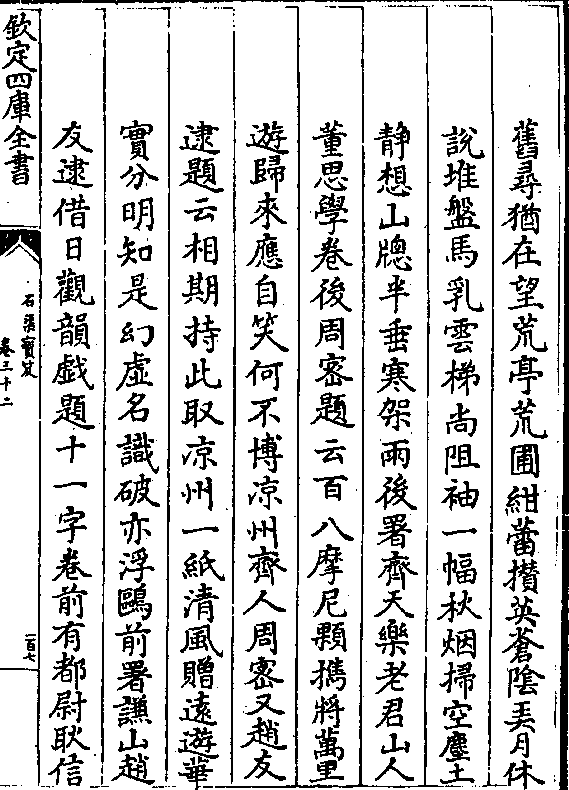 舊尋猶在望荒亭荒圃紺蕾攢英蒼陰美月休
說堆盤馬乳雲梯尚阻袖一幅秋烟掃空塵土
靜想山牕半垂寒架雨後署齊天樂老君山人
董思學卷後周密題云百八摩尼顆携將萬里
遊歸來應自笑何不博凉州齊人周密又趙友
逮題云相期持此取凉州一紙清風贈遠遊華
實分明知是幻虛名識破亦浮鷗前署譙山趙
友逮借日觀韻戲題十一字卷前有都尉耿信
欽定四庫全書
石渠寶笈
卷三十二
一百七